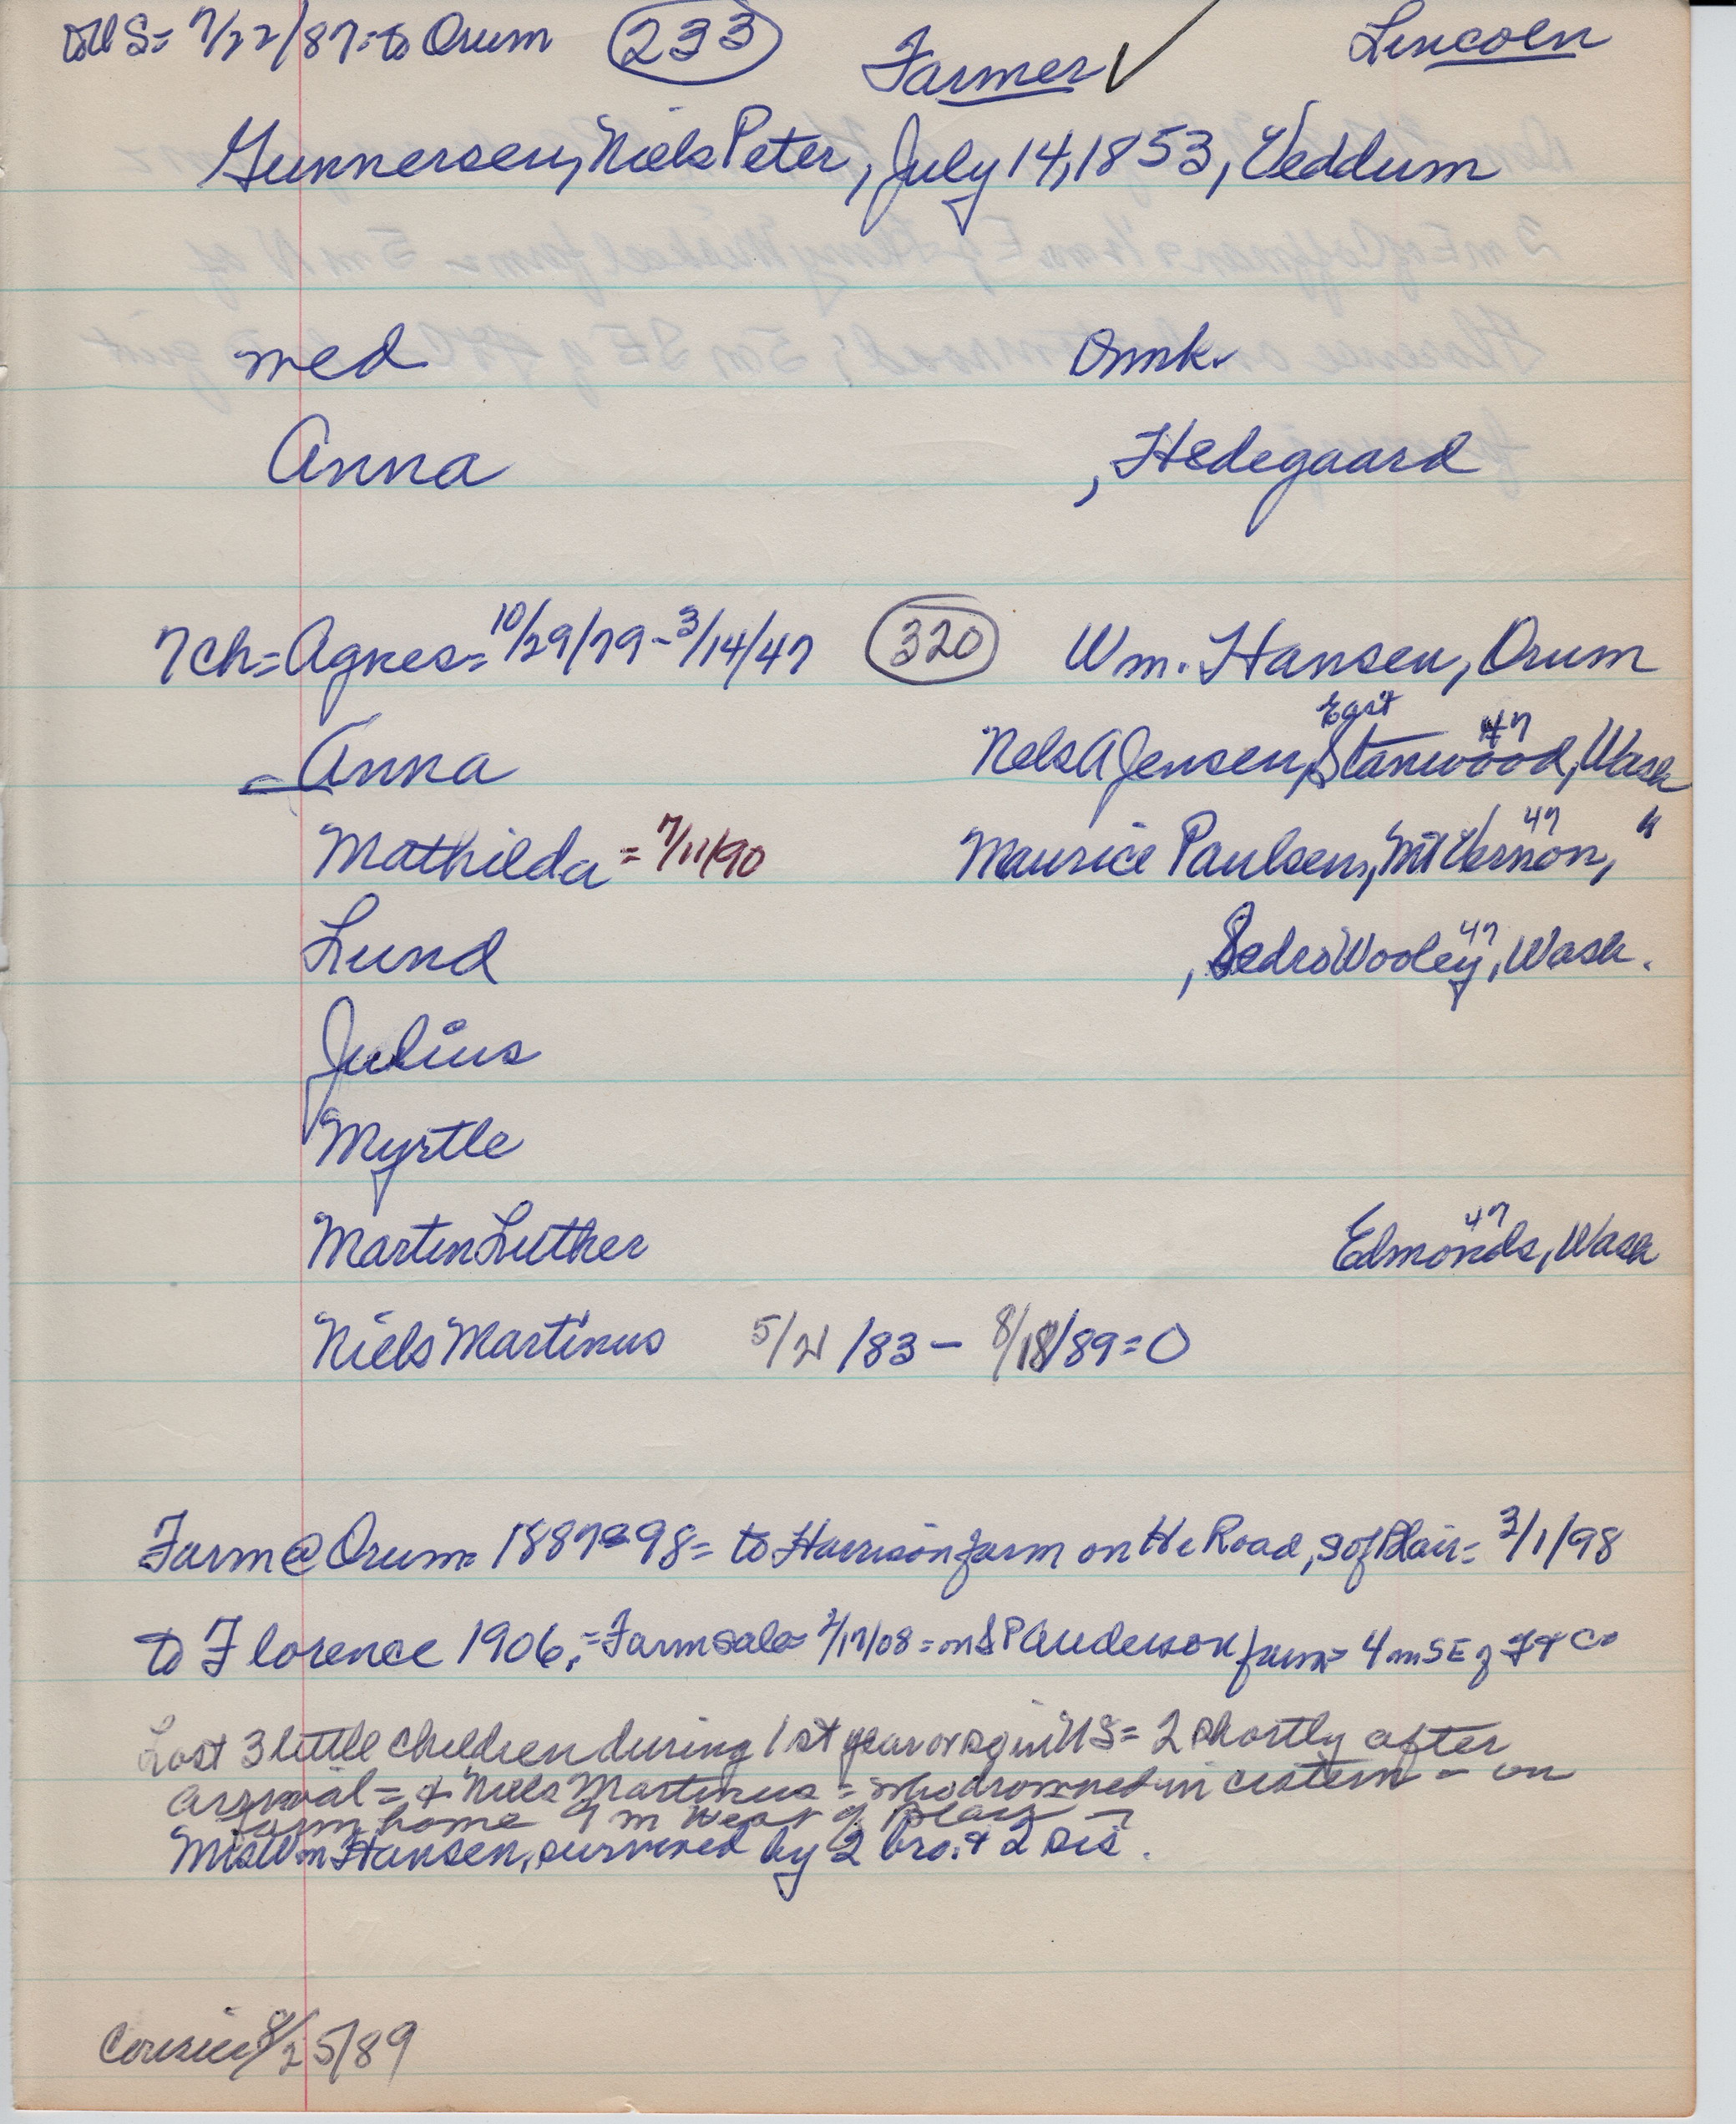 to US= 7/22/87=to Orum 233 Farmer✓ Lincoln
Gunnersen, Niels Peter, July 14, 1853, Veddum
med Dnmk.
Anna , Hedegaard
7 ch= Agnes= 10/29/79 - 3/14/47 320 Wm. Hansen, Orum
East 47
= Anna Nels A Jensen, Stanwood, Wash
Mathilda = 7/11/90 Maurice Paulsen, Mt Vernon, 47 "
Lund , Sedro Wooley, 47 Wash.
Julius
Myrtle
Martin Luther Edmonds, 47 Wash
Niels Martinus 5/21/83 - 8/18/89 = 0
Farm @ Orum= 1887-98= to Harrison farm on Hi Road, S of Blair= 3/1/98
to Florence 1906,= Farm sale= 2/17/08 = on S P Anderson farm= 4 m SE of Ft Co
Lost 3 little children during 1st year or so in US= 2 shortly after
arrival= & Niels Martinus = who drowned in cistern - on
farm home 9 m West of Blair
Mrs Wm Hansen, survived by 2 bro. & 2 sis.
Courier 8/25/89